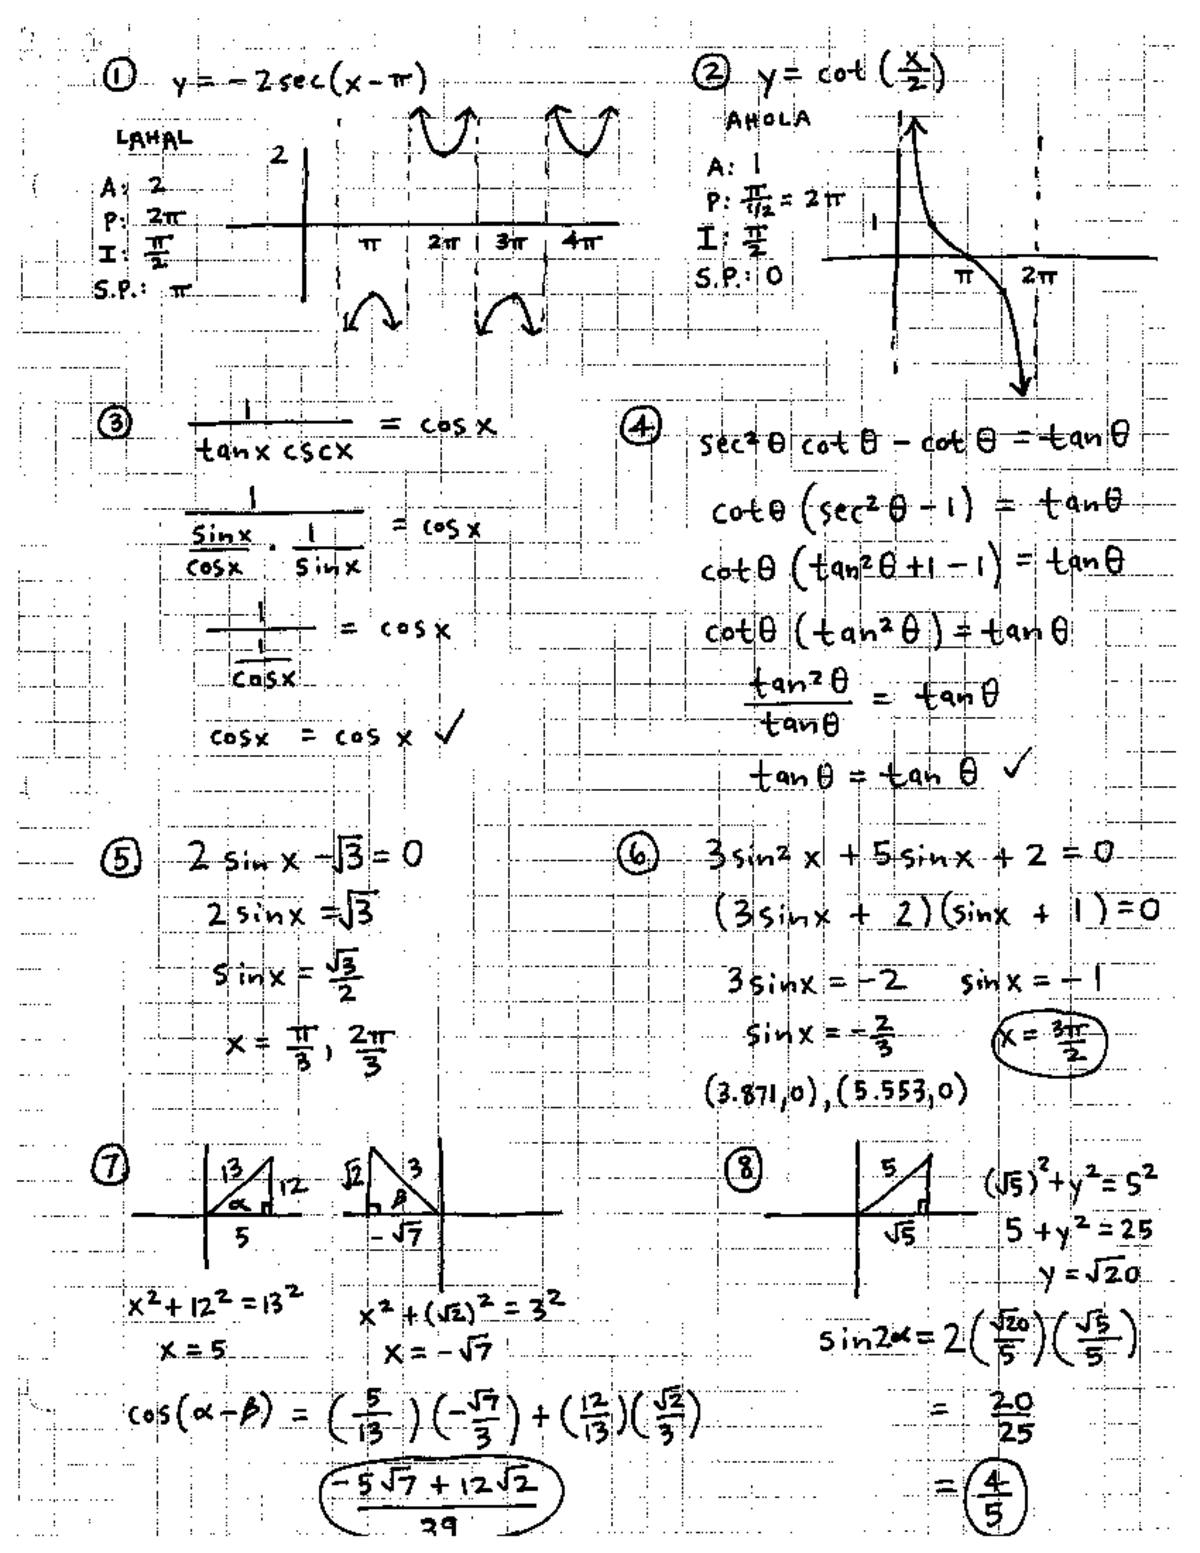 ① y = -2 sec(x - π)
LAHAL
A: 2
P: 2π
I: π/2
S.P.: π
2
π 2π 3π 4π
② y = cot (x/2)
AHOLA
A: 1
P: π/1/2 = 2π
I: π/2
S.P.: 0
1
π 2π
③ 1/(tanx cscx) = cosx
1/(sinx/cosx · 1/sinx) = cosx
1/(1/cosx) = cosx
cosx = cosx ✓
④ sec²θ cotθ - cotθ = tanθ
cotθ (sec²θ - 1) = tanθ
cotθ (tan²θ + 1 - 1) = tanθ
cotθ (tan²θ) = tanθ
tan²θ/tanθ = tanθ
tanθ = tanθ ✓
⑤ 2 sin x - √3 = 0
2 sinx = √3
sinx = √3/2
x = π/3, 2π/3
⑥ 3sin²x + 5sinx + 2 = 0
(3sinx + 2)(sinx + 1) = 0
3sinx = -2 sinx = -1
sinx = -2/3 x = 3π/2
(3.871,0), (5.553,0)
⑦
13 12 α 5
√2 3 β -√7
x² + 12² = 13²
x = 5
x² + (√2)² = 3²
x = -√7
cos(α - β) = (5/13)(-√7/3) + (12/13)(√2/3)
(-5√7 + 12√2)/39
⑧
5 √5
(√5)² + y² = 5²
5 + y² = 25
y = √20
sin2α = 2(√20/5)(√5/5)
= 20/25
= 4/5